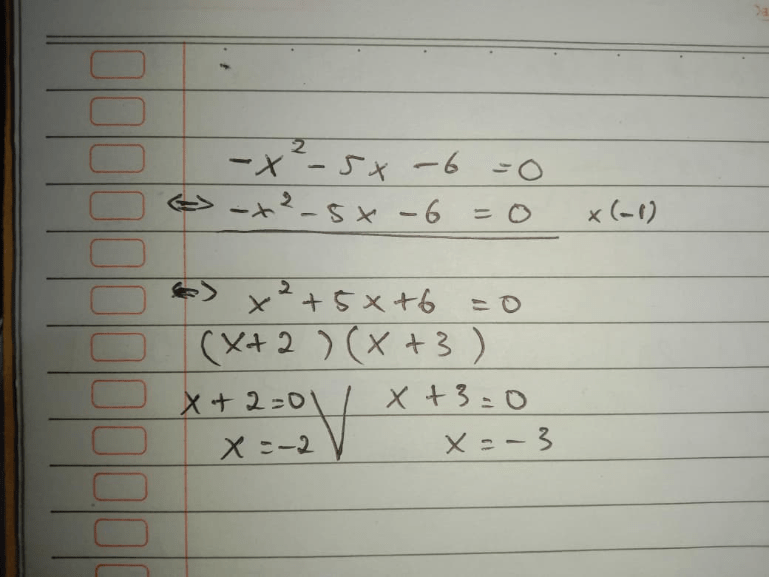 -x² - 5x - 6 = 0
<=> -x² - 5x - 6 = 0 x(-1)
<=> x² + 5x + 6 = 0
(x + 2)(x + 3)
x + 2 = 0 ∨ x + 3 = 0
x = -2 x = -3